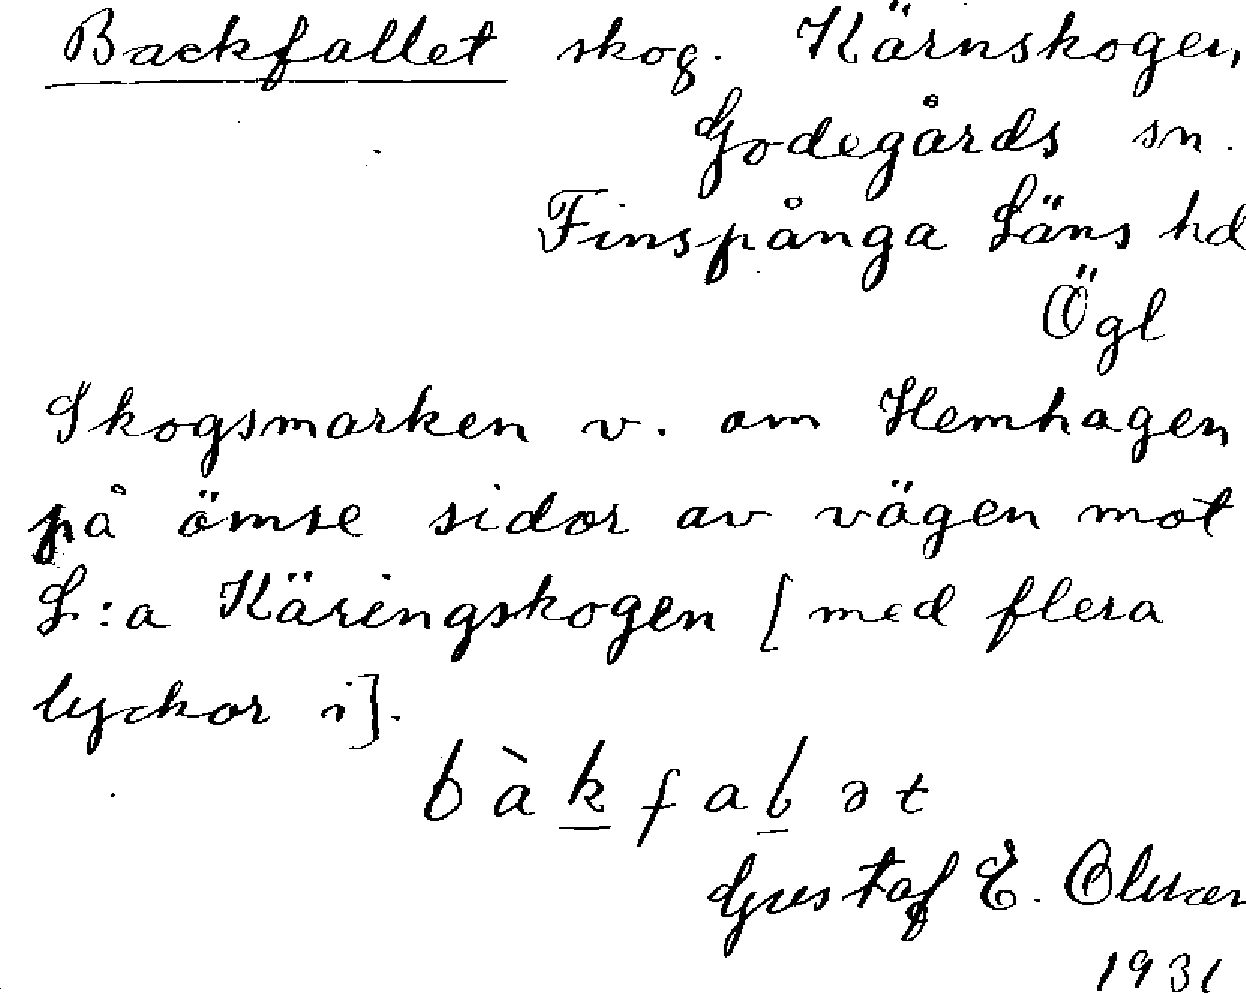 Backfallet skog. Kärnskogen,
Godegårds sn.
Finspånga Läns hd
Ögl
Skogsmarken v. om Hemhagen
på ömse sidor av vägen mot
L:a Käringskogen [med flera
lyckor i].
bàk̲fal̲ət
Gustaf E.
1931